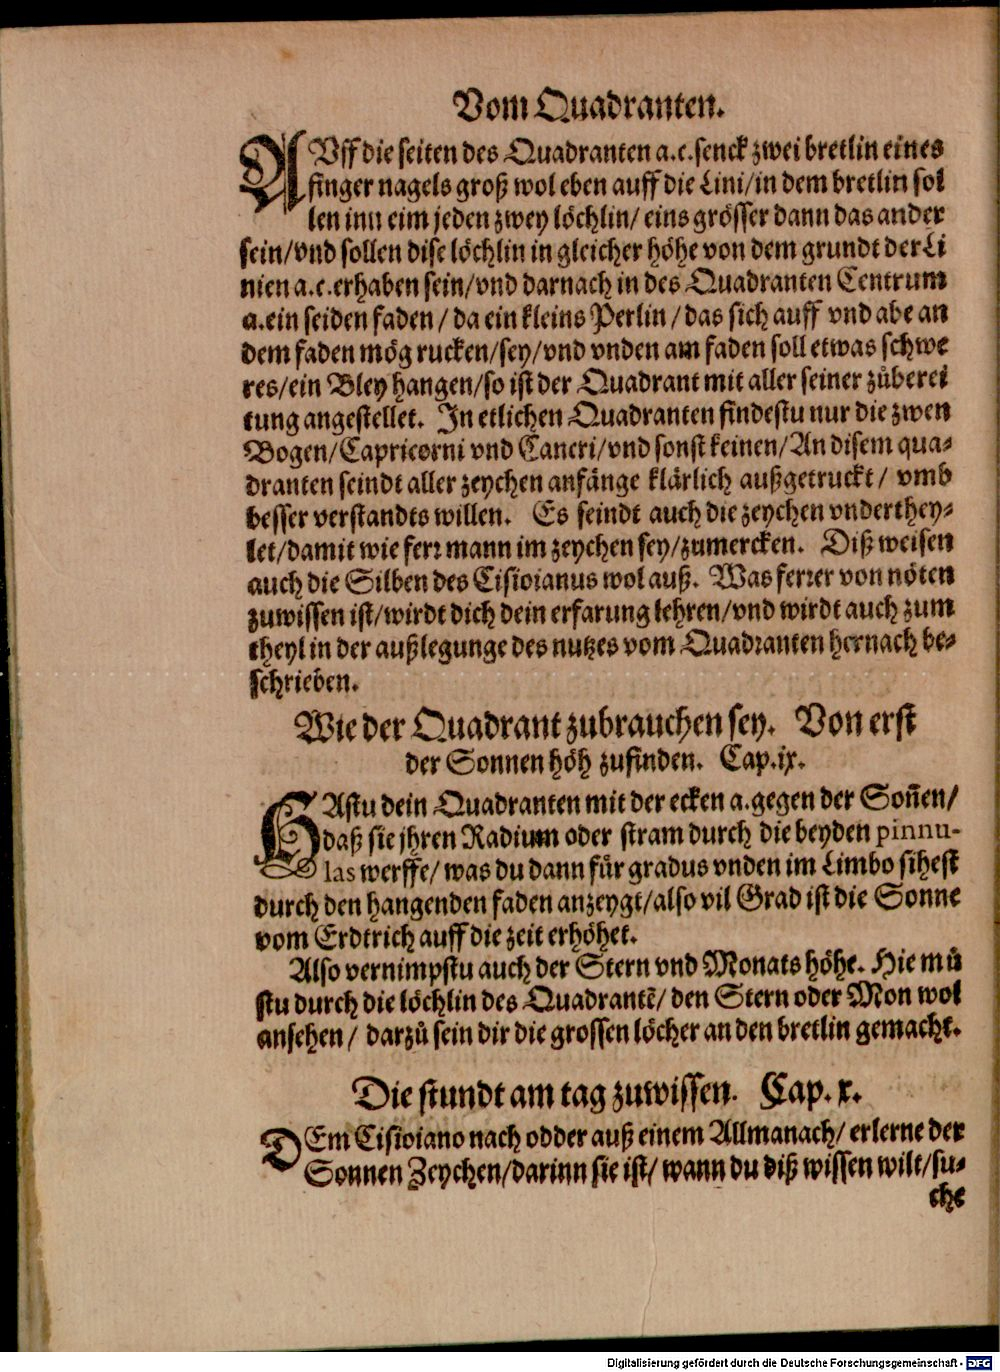 Vom Quadranten.
AVff die seiten des Quadranten a.c.senck zwei bretlin eines
finger nagels groß wol eben auff die Lini/in dem bretlin sol
len inn eim jeden zwey löchlin/ eins grösser dann das ander
sein/vnd sollen dise löchlin in gleicher höhe von dem grundt der Li
nien a.c.erhaben sein/vnd darnach in des Quadranten Centrum
a.ein seiden faden / da ein kleins Perlin / das sich auff vnd abe an
dem faden mög rucken/sey/vnd vnden am faden soll etwas schwe
res/ein Bley hangen/so ist der Quadrant mit aller seiner zůberei
tung angestellet. In etlichen Quadranten findestu nur die zwen
Bogen/Capricorni vnd Cancri/vnd sonst keinen/An disem qua-
dranten seindt aller zeychen anfänge klärlich außgetruckt / vmb
besser verstandts willen. Es seindt auch die zeychen vnderthey-
let/damit wie ferr mann im zeychen sey/zumercken. Diß weisen
auch die Silben des Cisioianus wol auß. Was ferrer von nöten
zuwissen ist/wirdt dich dein erfarung lehren/vnd wirdt auch zum
theyl in der außlegunge des nutzes vom Quadranten hernach be-
schrieben.
Wie der Quadrant zubrauchen sey. Von erst
der Sonnen höh zufinden. Cap.ix.
HAstu dein Quadranten mit der ecken a.gegen der Soñen/
daß sie jhren Radium oder stram durch die beyden pinnu-
las werffe/ was du dann für gradus vnden im Limbo sihest
durch den hangenden faden anzeygt/also vil Grad ist die Sonne
vom Erdtrich auff die zeit erhöhet.
Also vernimpstu auch der Stern vnd Monats höhe. Hie mů
stu durch die löchlin des Quadrantẽ/ den Stern oder Mon wol
ansehen / darzů sein dir die grossen löcher an den bretlin gemacht.
Die stundt am tag zuwissen. Cap. x.
DEm Cisioiano nach odder auß einem Allmanach/ erlerne der
Sonnen Zeychen/darinn sie ist/ wann du diß wissen wilt/su-
che
Digitalisierung gefördert durch die Deutsche Forschungsgemeinschaft - DFG